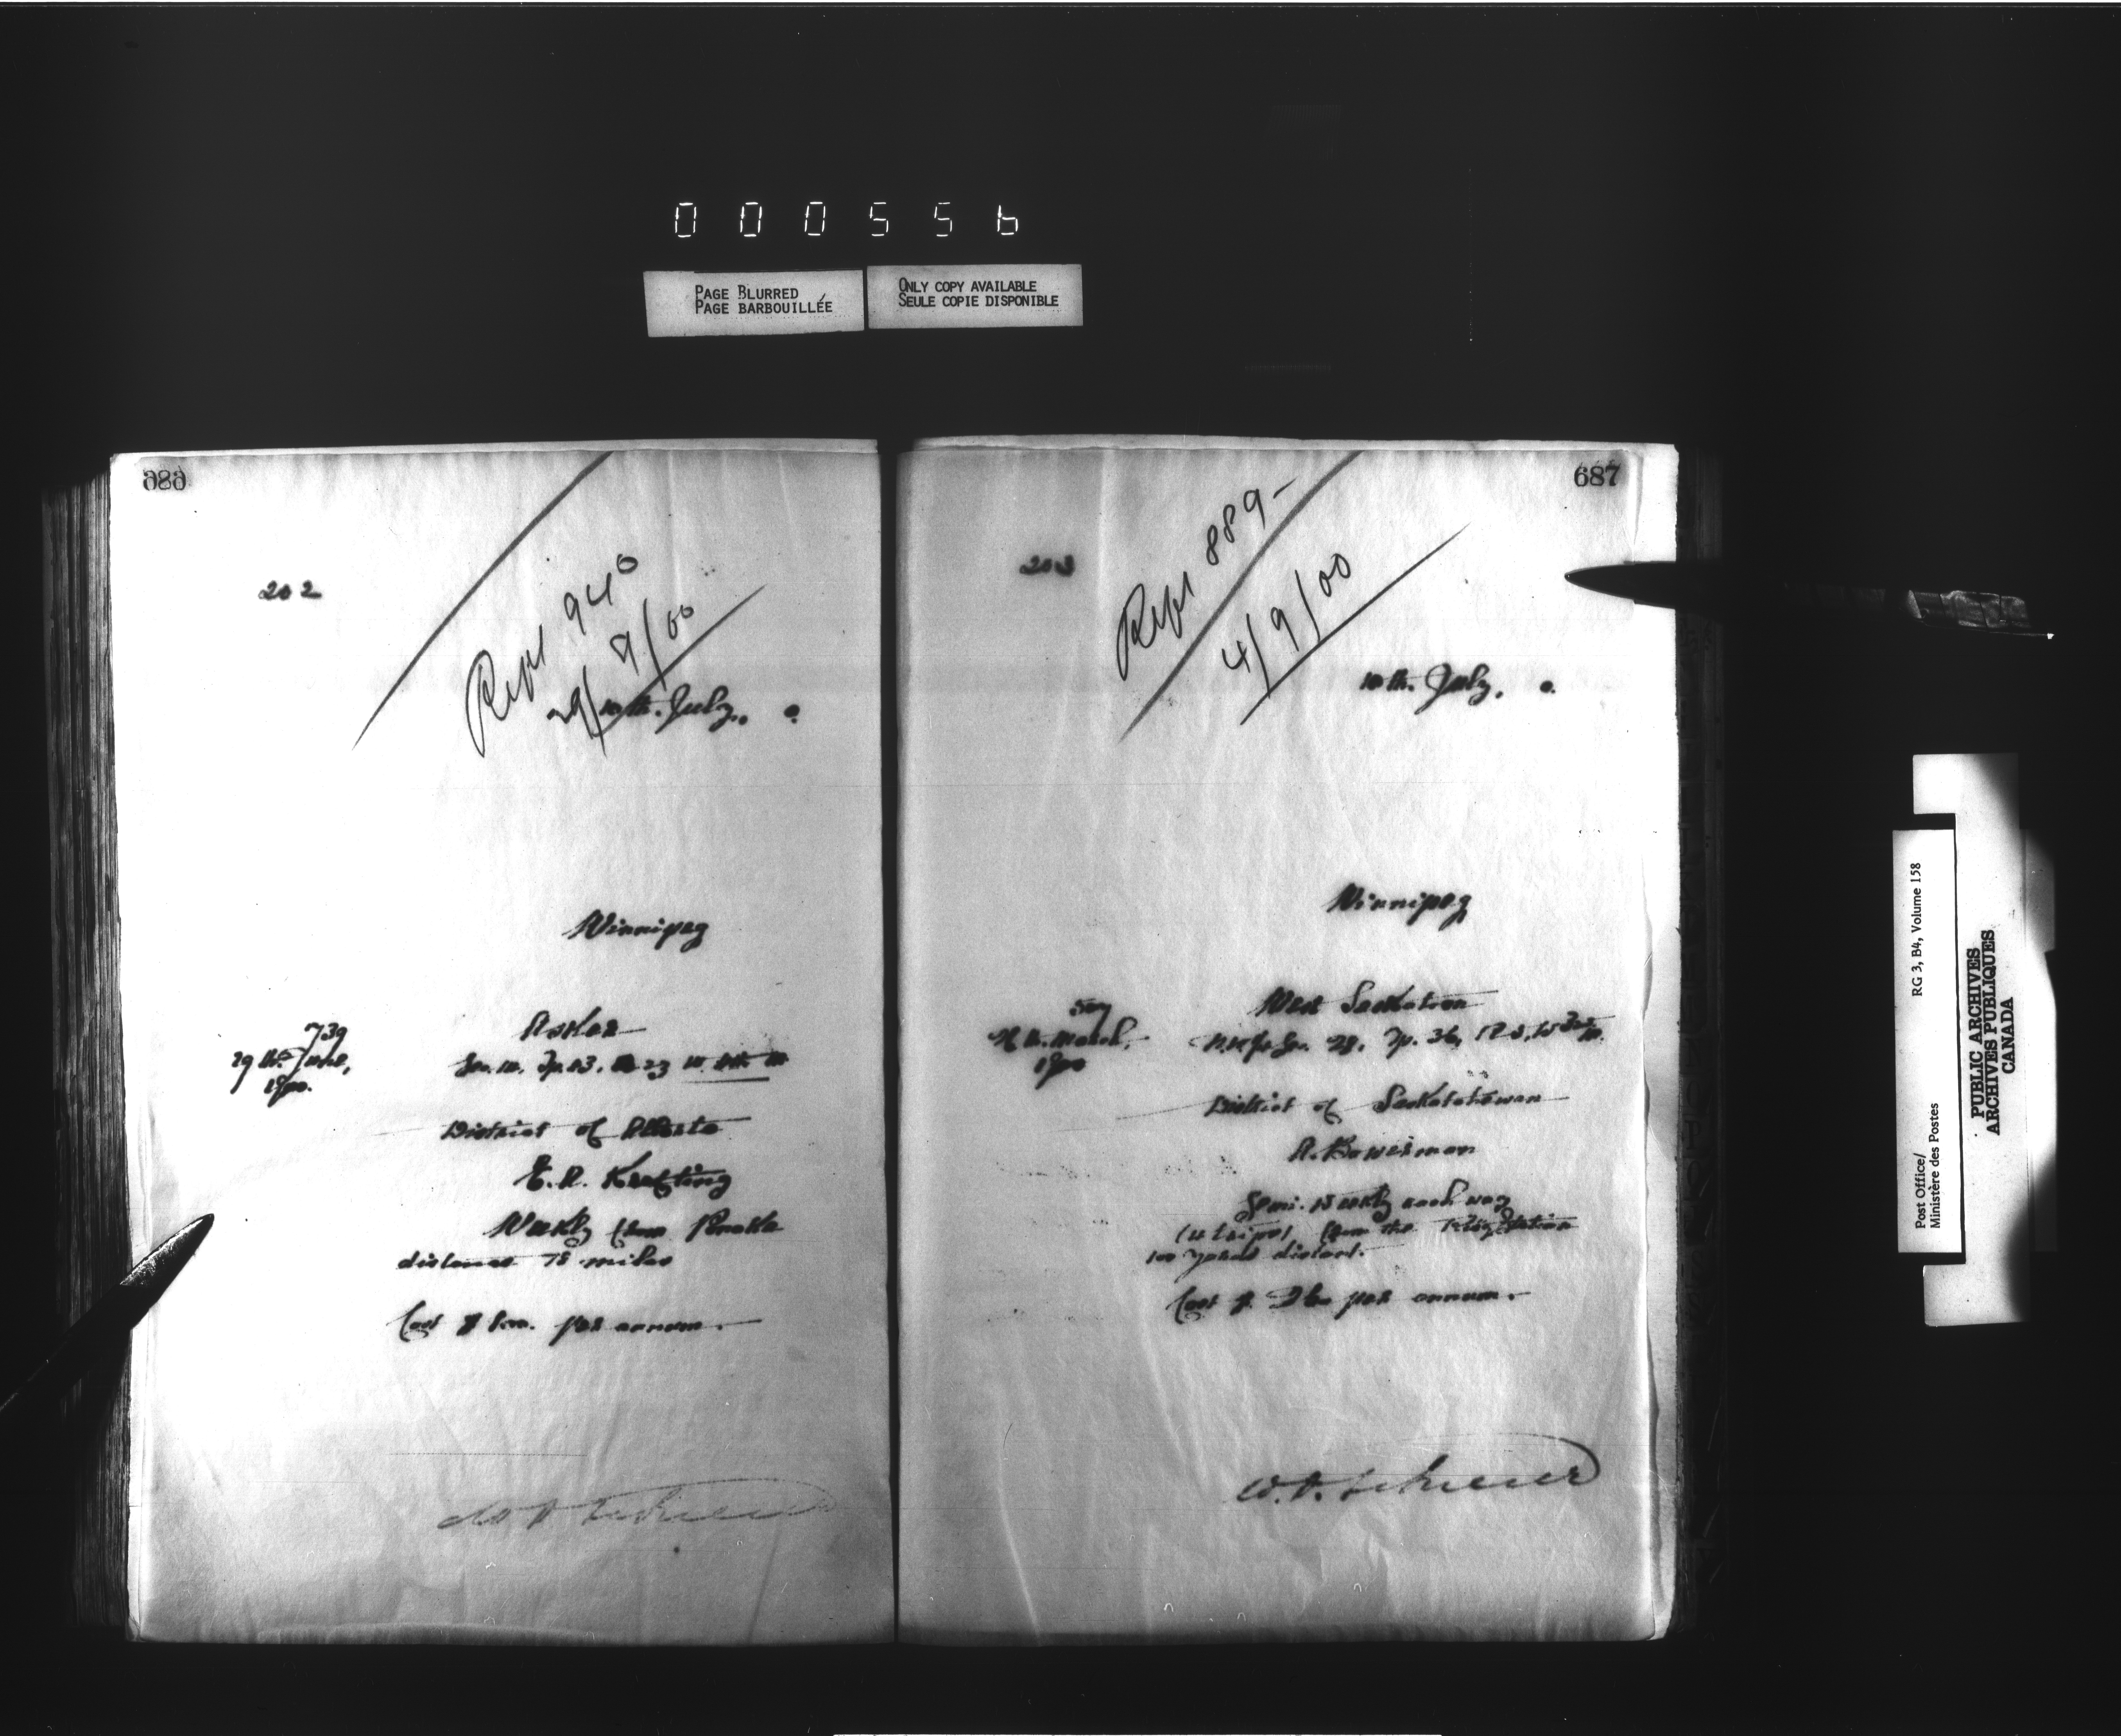 000556
PAGE BLURRED
PAGE BARBOUILLÉE
ONLY COPY AVAILABLE
SEULE COPIE DISPONIBLE
686
202
Rept 940
29/9/00
10th. July, 0.
Winnipeg
739
29th June,
1900.
Asker
Sec. 10, Tp. 43, R 23 W. 4th M
District of Alberta
E. R. Keeting
Weekly from Ponoka
distance 18 miles
Cost $ per annum.
687
203
Rept 889-
4/9/00
10th. July, 0.
Winnipeg
507
March,
1900
West Saskatoon
Sec. 28, Tp. 36, R 5, W 3rd M.
District of Saskatchewan
A. Bowerman
Semi-Weekly each way
(4 trips) from the Rly Station
100 yards distant.
Cost $ per annum.
RG 3, B4, Volume 158
Post Office/
Ministère des Postes
PUBLIC ARCHIVES
ARCHIVES PUBLIQUES
CANADA